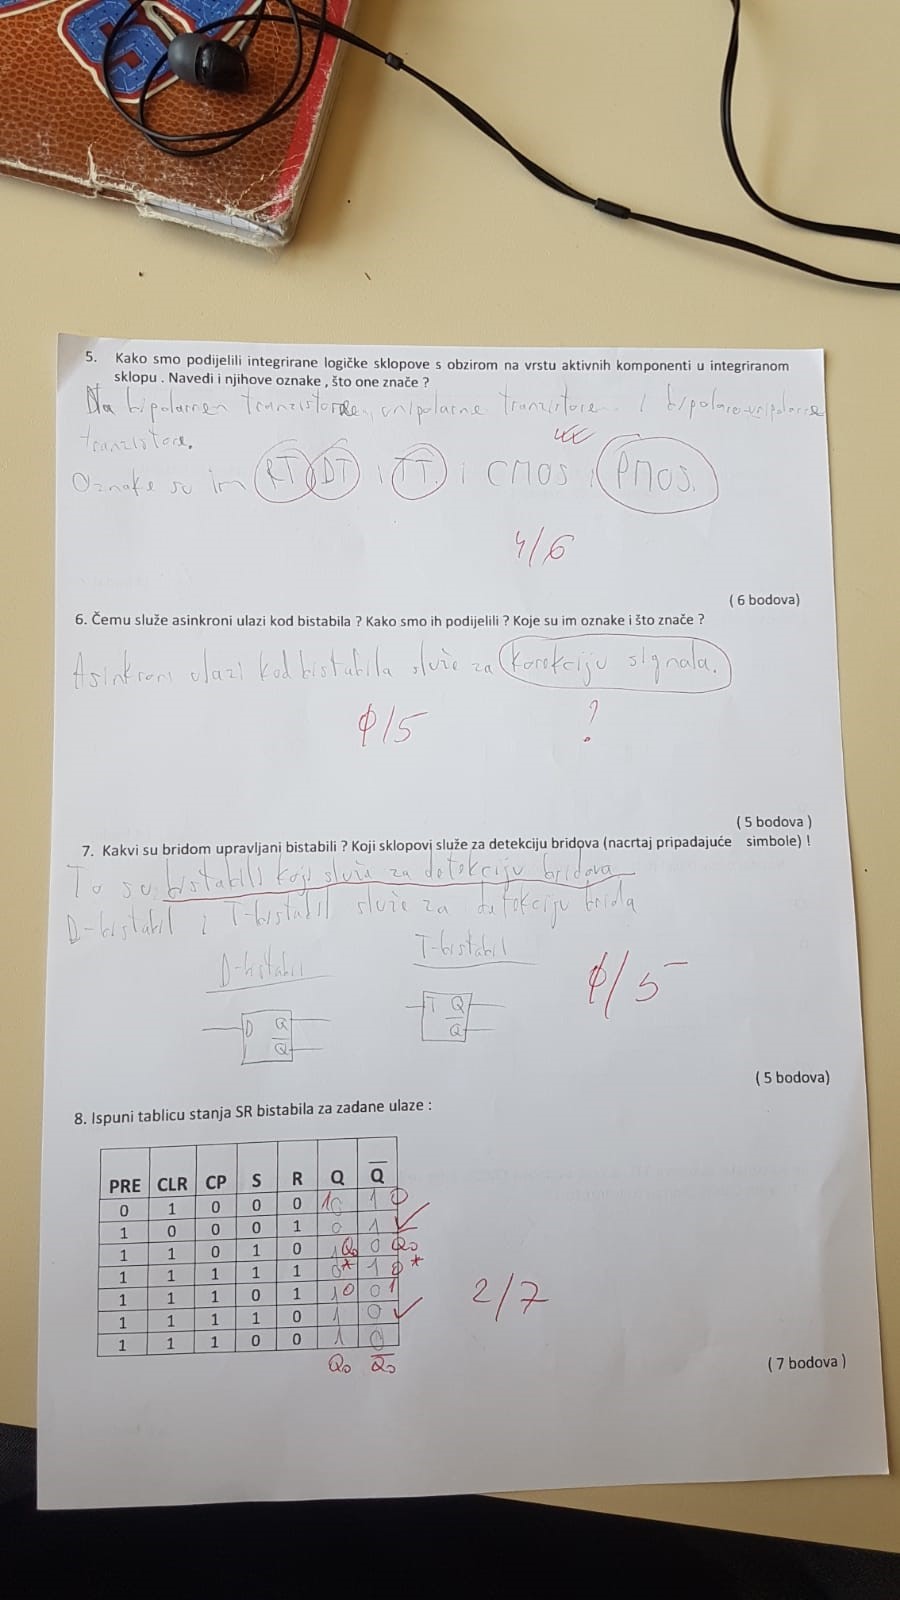 5. Kako smo podijelili integrirane logičke sklopove s obzirom na vrstu aktivnih komponenti u integriranom
sklopu . Navedi i njihove oznake , što one znače ?
Na bipolarnen tranzistore, unipolarne tranzistore i bipolarno-unipolarne
tranzistore.
Oznake su im RT DT i TT i CMOS i PMOS.
4/6
( 6 bodova)
6. Čemu služe asinkroni ulazi kod bistabila ? Kako smo ih podijelili ? Koje su im oznake i što znače ?
Asinkroni ulazi kod bistabila služe za korekciju signala.
0/5 ?
( 5 bodova )
7. Kakvi su bridom upravljani bistabili ? Koji sklopovi služe za detekciju bridova (nacrtaj pripadajuće simbole) !
To su bistabili koji služe za detekciju bridova
D-bistabil i T-bistabil služe za detekciju brida
D-bistabil T-bistabil
D Q Q̅ T Q Q̅
0/5
( 5 bodova)
8. Ispuni tablicu stanja SR bistabila za zadane ulaze :
PRE CLR CP S R Q Q̅
0 1 0 0 0 1 0 1 0
1 0 0 0 1 0 1
1 1 0 1 0 1 Q₀ 0 Q₀
1 1 1 1 1 0 * 1 0*
1 1 1 0 1 1 0 0 1
1 1 1 1 0 1 0
1 1 1 0 0 1 0
Q₀ Q̅₀
2/7
( 7 bodova )